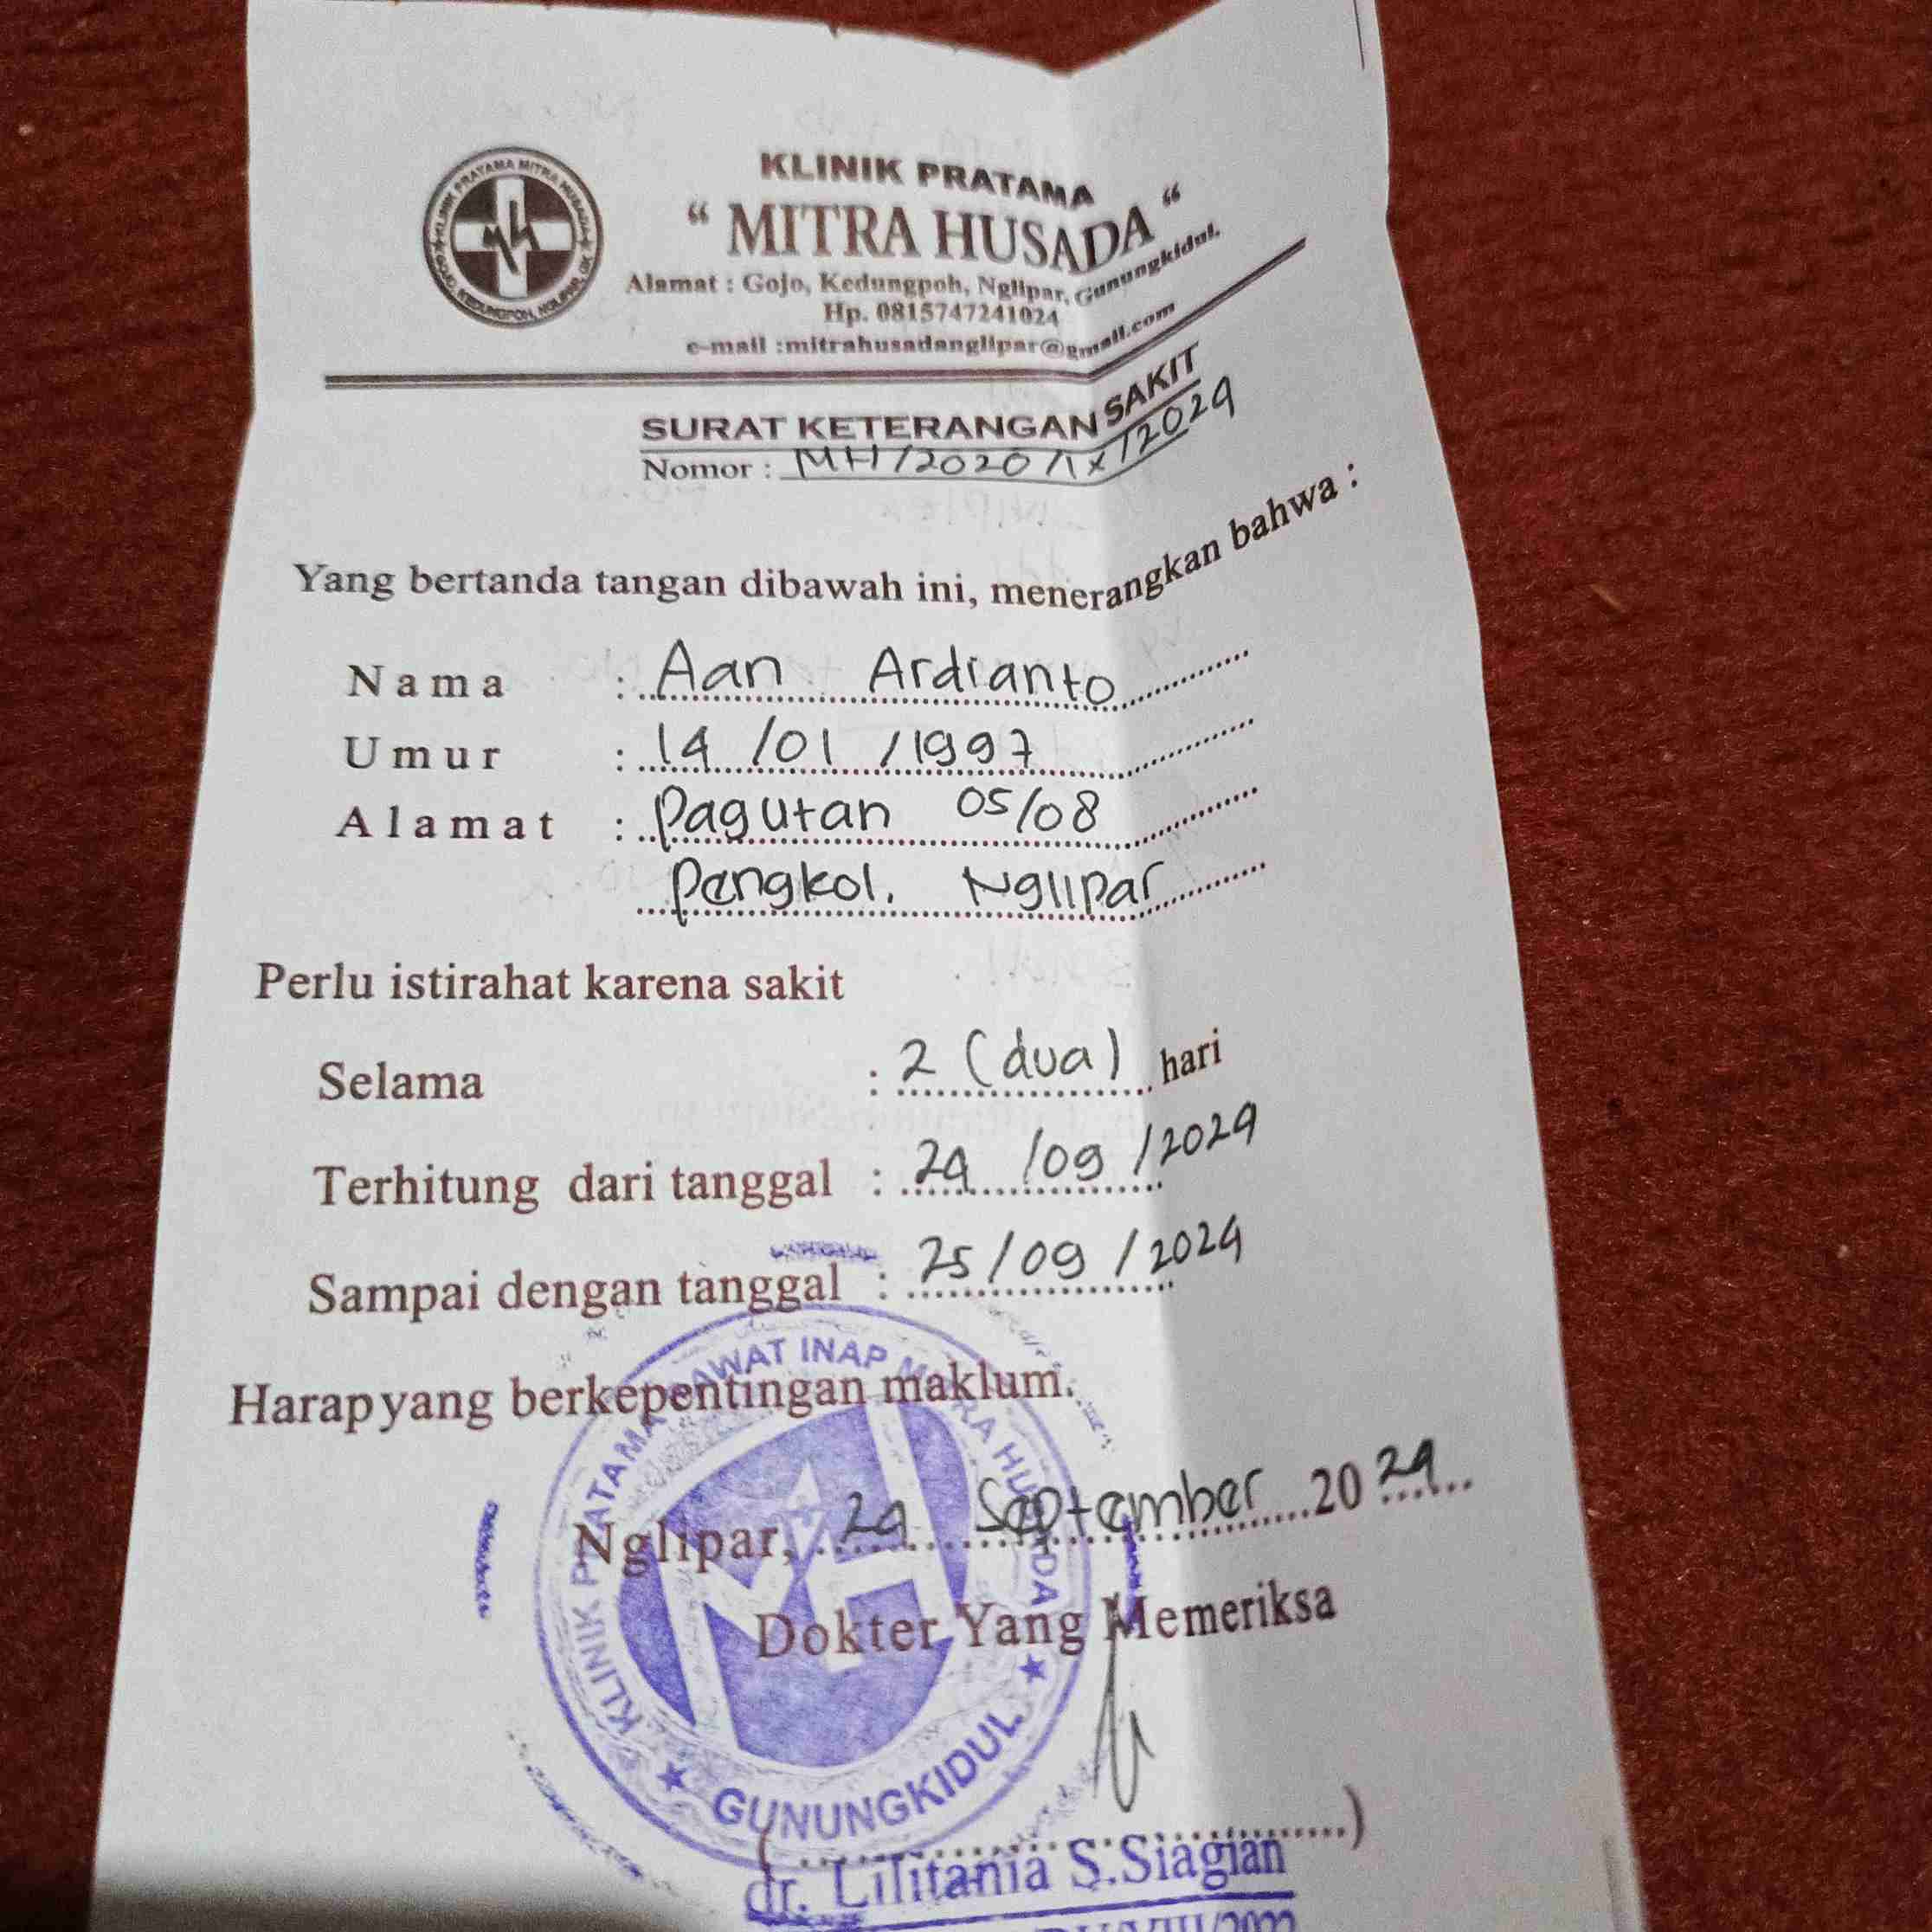 KLINIK PRATAMA MITRA HUSADA
GOJO, KEDUNGPOH, NGLIPAR, GK
KLINIK PRATAMA
" MITRA HUSADA "
Alamat : Gojo, Kedungpoh, Nglipar, Gunungkidul.
Hp. 0815747241024
e-mail :mitrahusadanglipar@gmail.com
SURAT KETERANGAN SAKIT
Nomor : MH/2020/IX/2024
Yang bertanda tangan dibawah ini, menerangkan bahwa :
Nama : Aan Ardianto
Umur : 14/01/1997
Alamat : Pagutan 05/08
Pengkol. Nglipar
Perlu istirahat karena sakit
Selama : 2 (dua) hari
Terhitung dari tanggal : 24/09/2024
Sampai dengan tanggal : 25/09/2024
Harap yang berkepentingan maklum.
KLINIK PRATAMA RAWAT INAP MITRA HUSADA
Nglipar, 24 September 2024
Dokter Yang Memeriksa
GUNUNGKIDUL
(....................)
dr. Lilitania S.Siagian